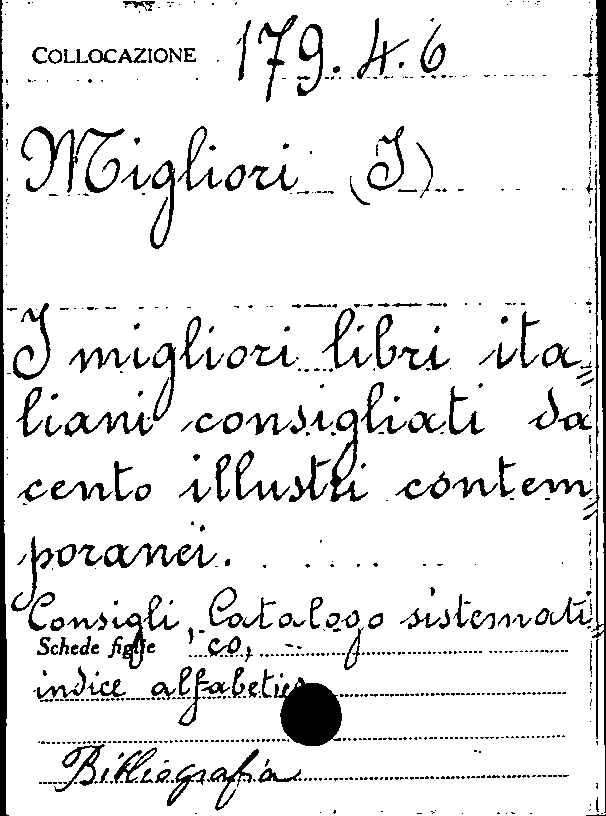 COLLOCAZIONE 179.4.6
Migliori (I)
I migliori libri ita=
liani consigliati da
cento illustri contem=
poranei.
Consigli, Catalogo sistemati=
Schede figlie co,
indice alfabetico
Bibliografia